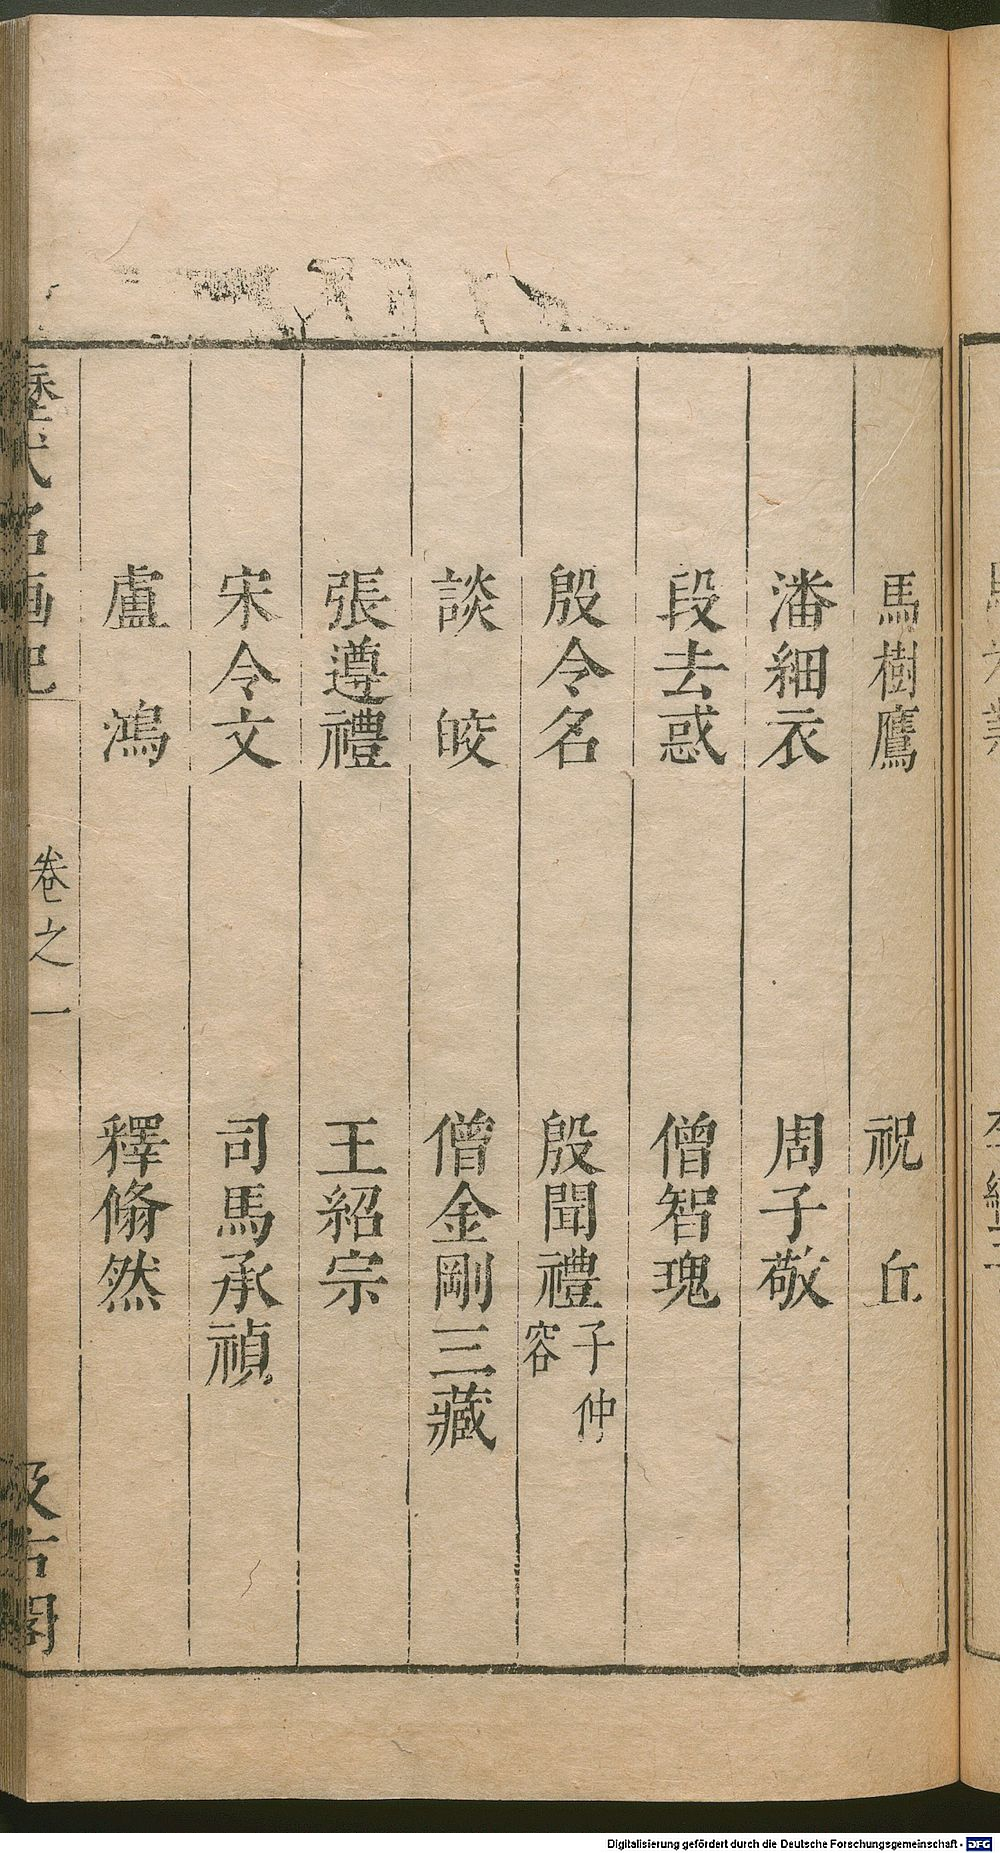 馬樹鷹 祝丘
潘細衣 周子敬
段去惑 僧智瑰
殷令名 殷聞禮子仲容
談皎 僧金剛三藏
張遵禮 王紹宗
宋令文 司馬承禎
盧鴻 釋翛然
歷代名画記 卷之一 汲古閣
Digitalisierung gefördert durch die Deutsche Forschungsgemeinschaft - DFG